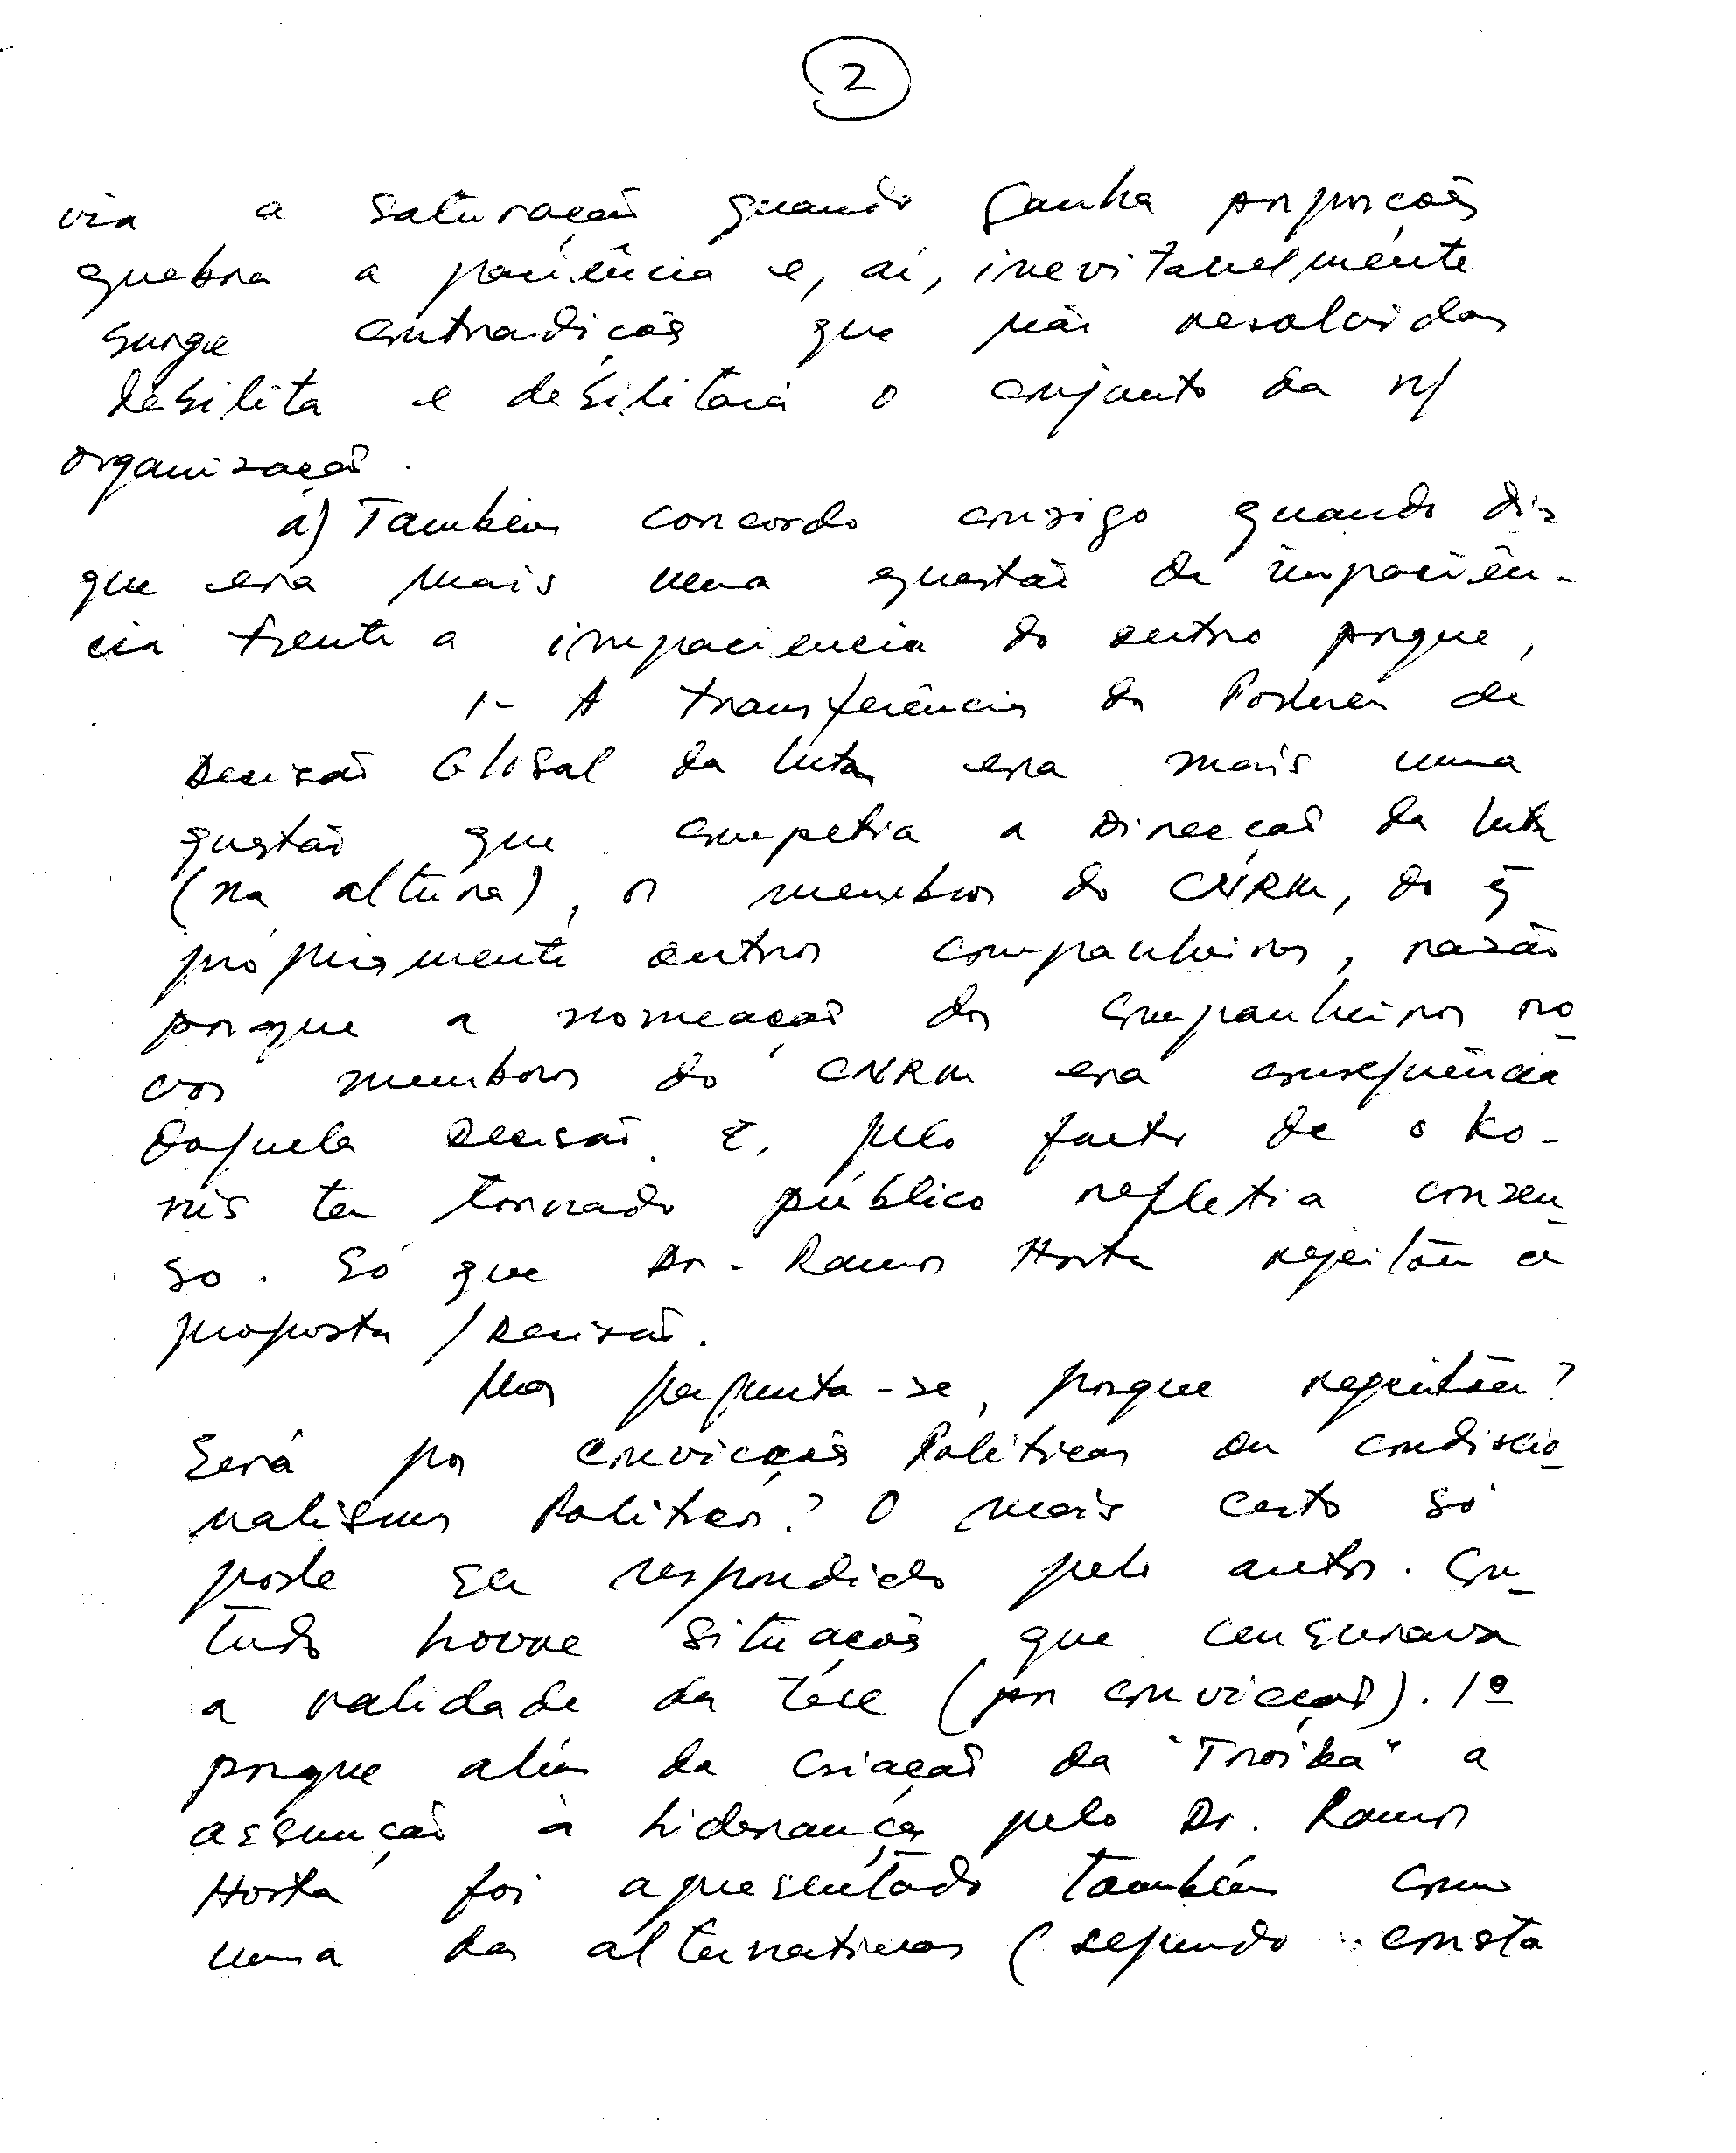 2
via a saturação quando ganha proporções
quebra a paciência e, aí, inevitavelmente
surge contradições que não resolvidas
debilita e debilitará o conjunto da n/
organização.
a) Também concordo consigo quando diz
que era mais uma questão de impaciên-
cia frente a impaciencia do outro porque,
1- A transferência do Poder de
Decisão Global da luta era mais uma
questão que competia a Direcção da luta
(na altura), os membros do CNRM, do q̃
própriamente outros companheiros, razão
porque a nomeação dos companheiros no-
vos membros do CNRM era consequência
daquela Decisão. E, pelo facto de o Ko-
nis ter tornado público refletia consen-
so. Só que Dr. Ramos Horta rejeitou a
proposta / Decisão.
Mas pergunta-se, porque rejeitou?
Será por convicções Políticas ou condicio-
nalismos Politicos? O mais certo só
pode ser respondido pelo autor. Con-
tudo houve situações que censurava
a validade da tese (por convicção). 1º
porque além da criação da "Troika" a
assunção à liderança pelo Dr. Ramos
Horta foi apresentado também como
uma das alternativas (segundo consta